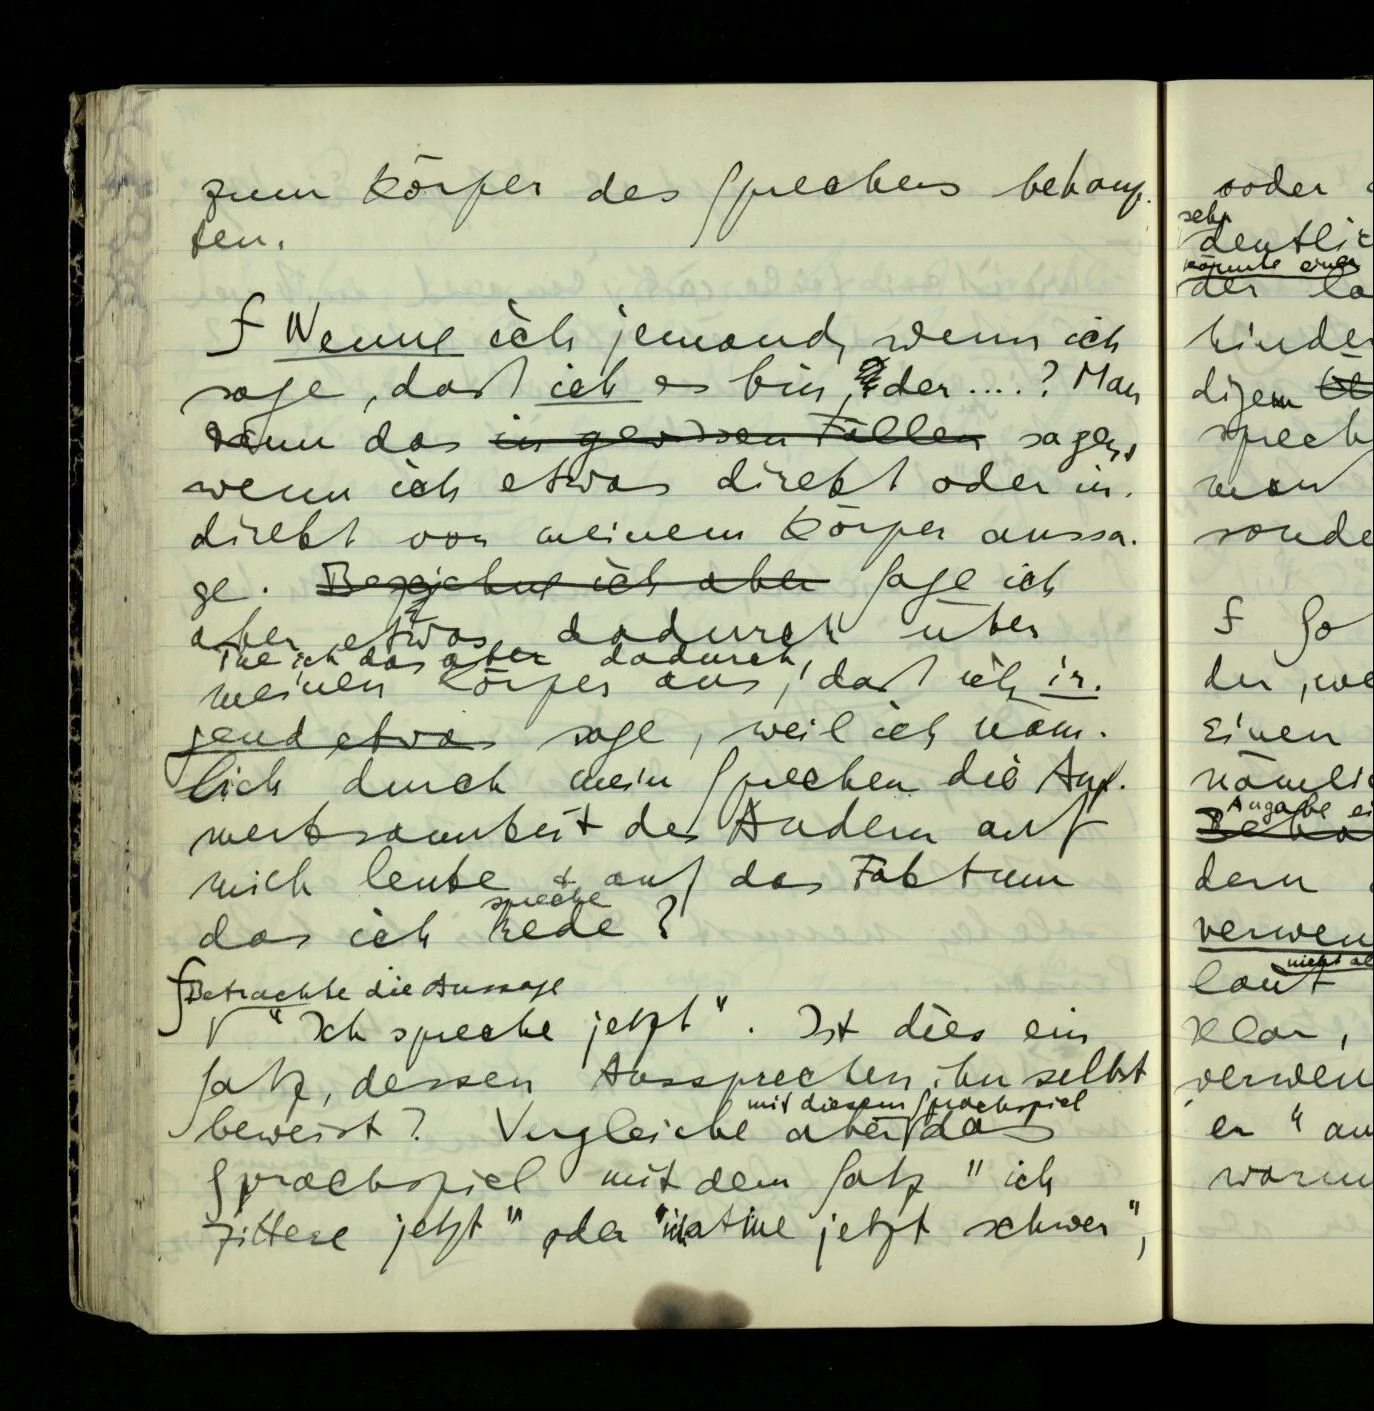 zum Körper des Sprechens behaup-
ten.
f Nenne ich jemand, wenn ich
sage, daß ich es bin, der ....? Man
kann das in gewissen Fällen sagen,
wenn ich etwas direkt oder in-
direkt von meinem Körper aussa-
ge. Bezeichne ich aber Sage ich
aber etwas dadurch über
Tue ich das aber dadurch,
meinen Körper aus, daß ich ir-
gend etwas sage, weil ich näm-
lich durch mein Sprechen die Auf-
merksamkeit des Andern auf
mich lenke & auf das Faktum
spreche
das ich rede?
f Betrachte die Aussage
"Ich spreche jetzt". Ist dies ein
Satz, dessen Aussprechen ihn selbst
mit diesem Sprachspiel
beweist? Vergleiche aber das
Sprachspiel mit dem Satz "ich
zittere jetzt" oder "ich atme jetzt schwer",
oder
sehr
deutlic
könnte einer
der la
hinder
digem
sprech
man
sonde
f So
der, we
einen
nämlic
Angabe ei
dern
verwen
nicht al
laut
klar,
verwen
er "au
warm